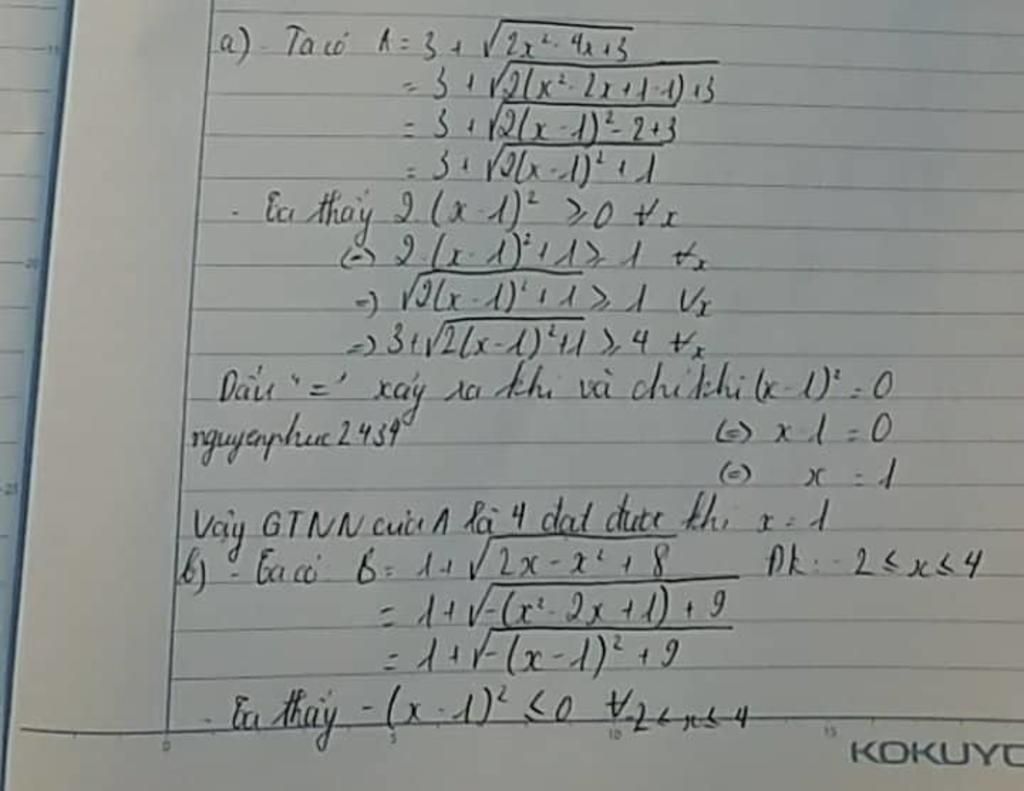 a) - Ta có A = 3 + √(2x² - 4x + 3)
= 3 + √(2(x² - 2x + 1 - 1) + 3)
= 3 + √(2(x - 1)² - 2 + 3)
= 3 + √(2(x - 1)² + 1)
- Ta thấy 2(x - 1)² ≥ 0 ∀x
(=) 2(x - 1)² + 1 ≥ 1 ∀x
=) √(2(x - 1)² + 1) ≥ 1 ∀x
=> 3 + √(2(x - 1)² + 1) ≥ 4 ∀x
Dấu "=" xảy ra khi và chỉ khi (x - 1)² = 0
nguyenphuc2439 (=) x - 1 = 0
(=) x = 1
Vậy GTNN của A là 4 đạt được khi x = 1
b) - Ta có B = 1 + √(2x - x² + 8) Đk: -2 ≤ x ≤ 4
= 1 + √(-(x² - 2x + 1) + 9)
= 1 + √(-(x - 1)² + 9)
- Ta thấy -(x - 1)² ≤ 0 ∀ -2 ≤ x ≤ 4
0 5 10 15
KOKUYO